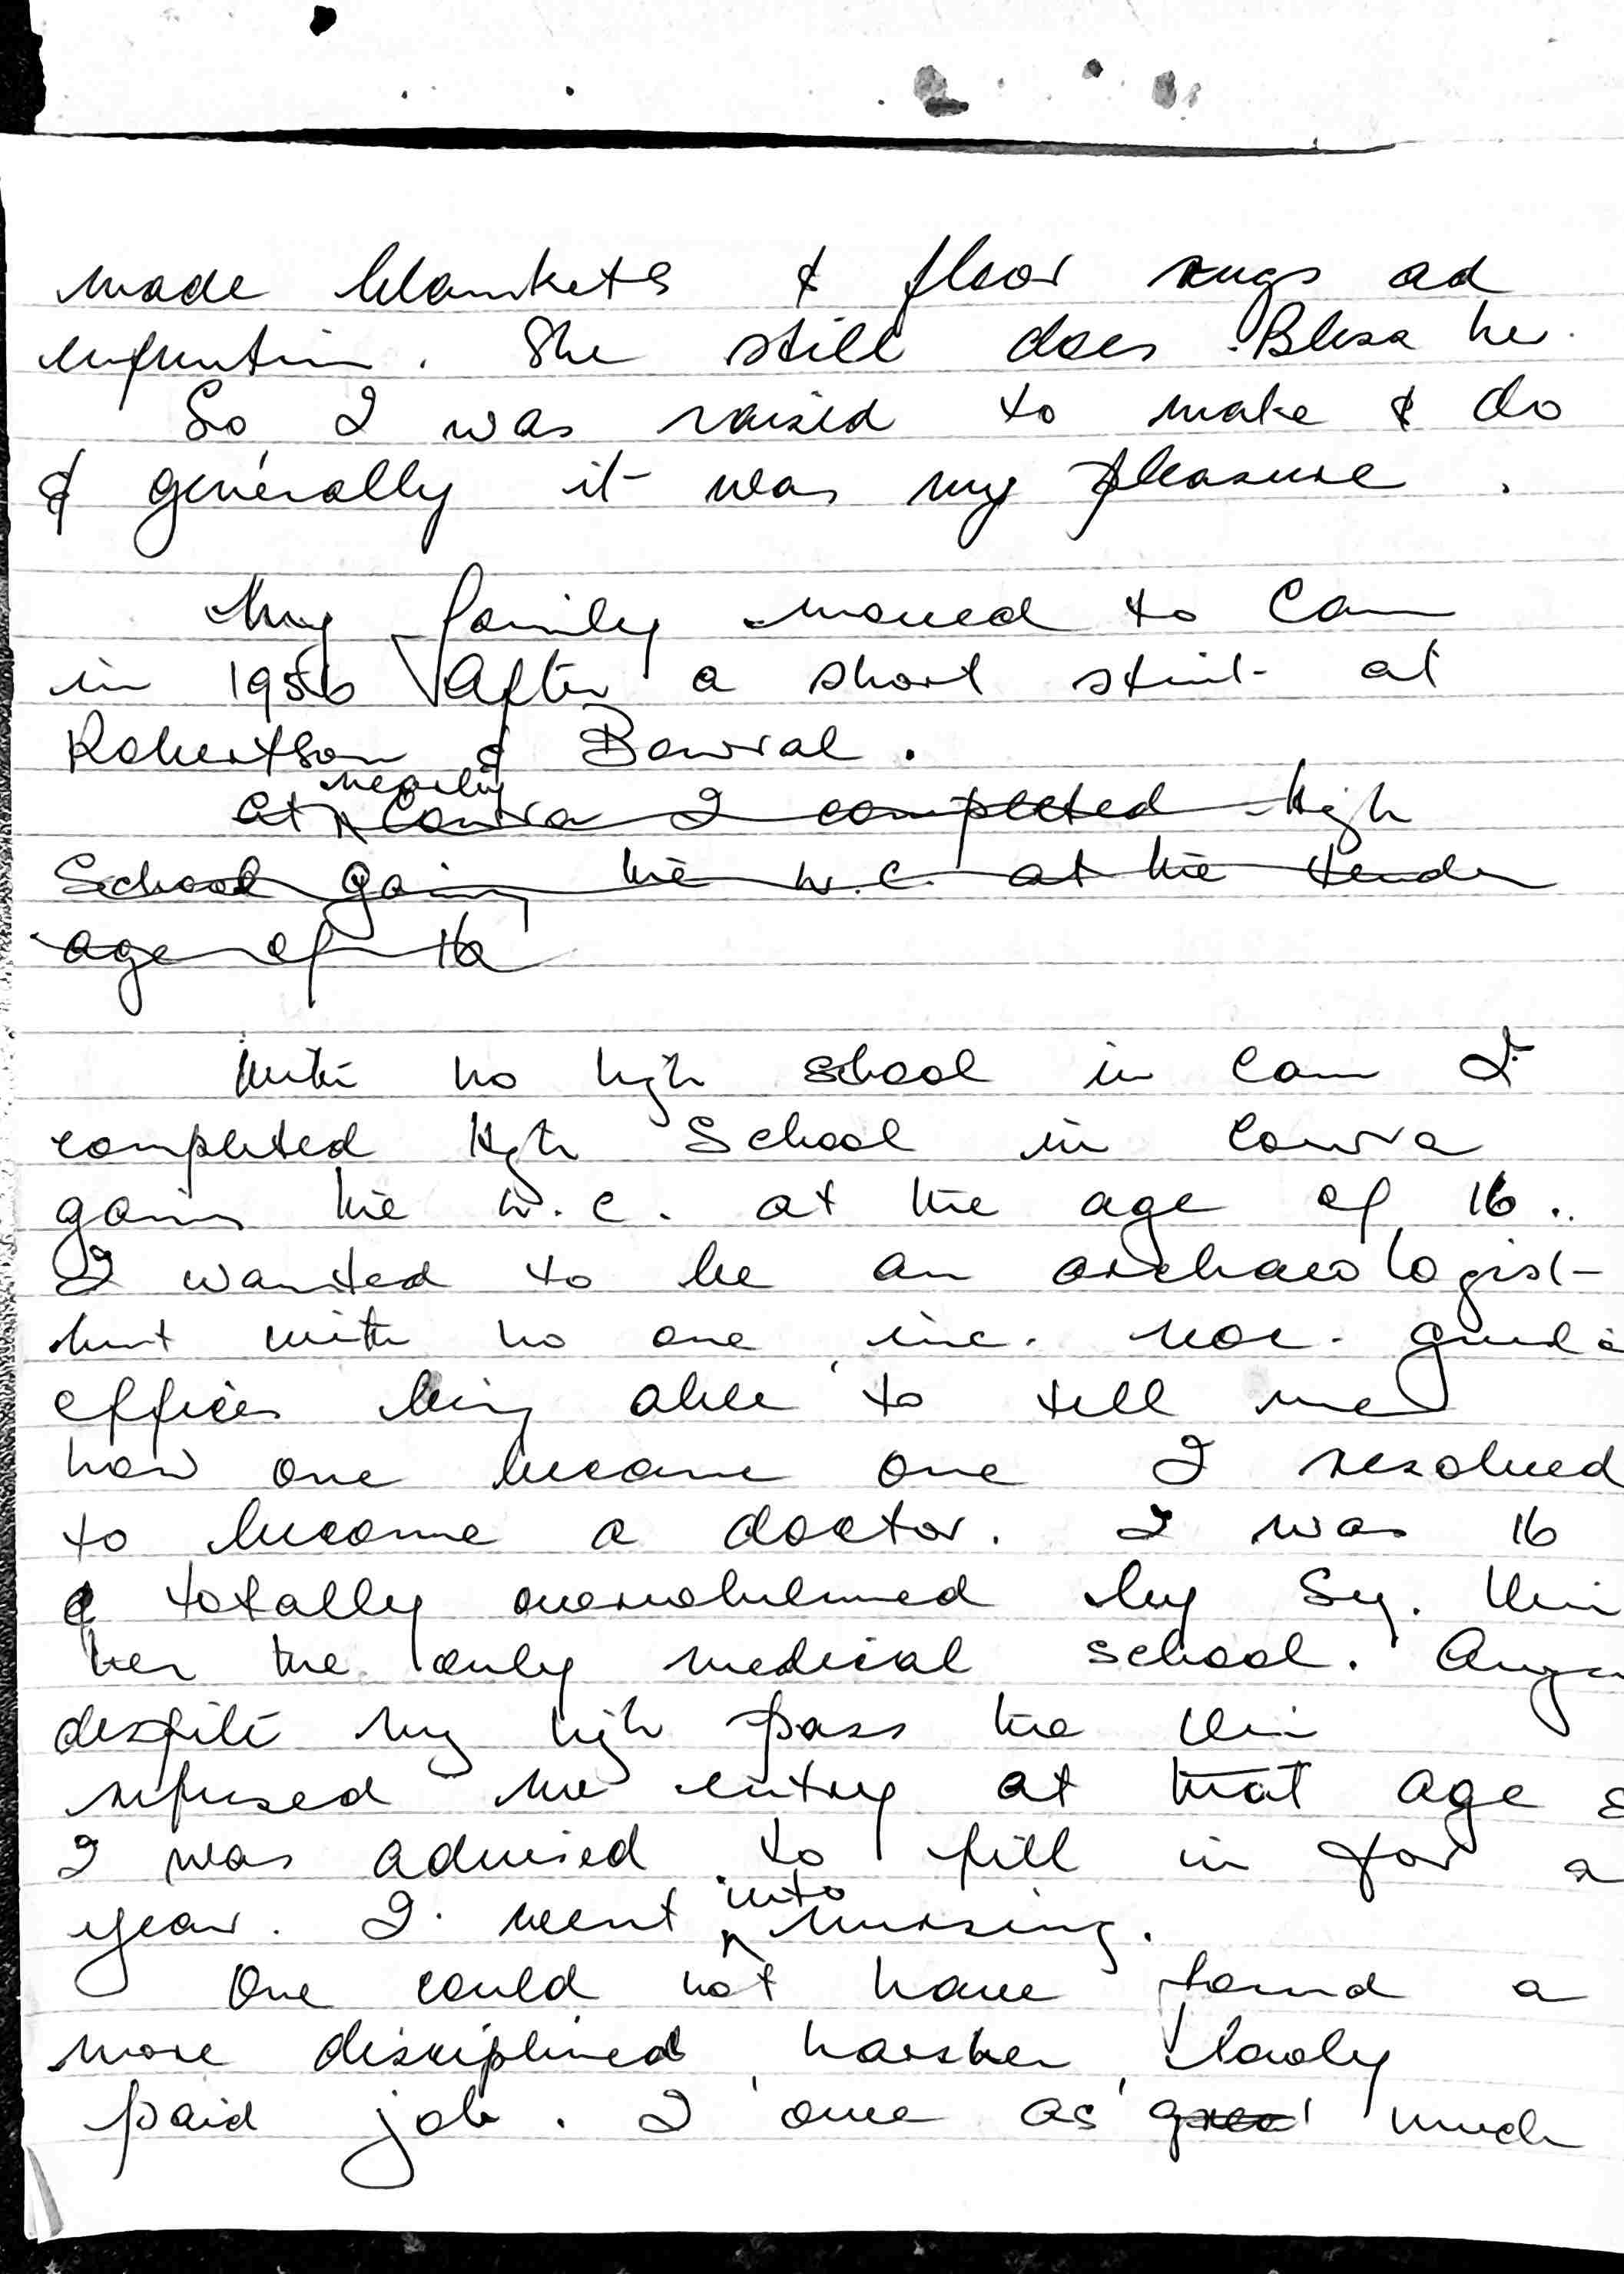 made blankets & floor rugs ad
infinitum. She still does. Bless her.
So, I was raised to make & do
& generally it was my pleasure.
My family moved to Cam
in 1956 After a short stint at
Robertson & Bowral.
At nearby Cowra I completed High
School gaining the L.C. at the tender
age of 16
With no high school in Cam I
completed High School in Cowra
gaining the L.C. at the age of 16..
I wanted to be an archaeologist
but with no one, inc. voc. guid
officer being able to tell me
how one became one I resolved
to become a doctor. I was 16
& totally overwhelmed by Sy. Uni
then the only medical school.
despite my high pass the Uni
refused me entry at that age
I was advised to fill in for a
year. I went into nursing.
One could not have found a
more disciplined, harsher, lowly
paid job. I owe as much